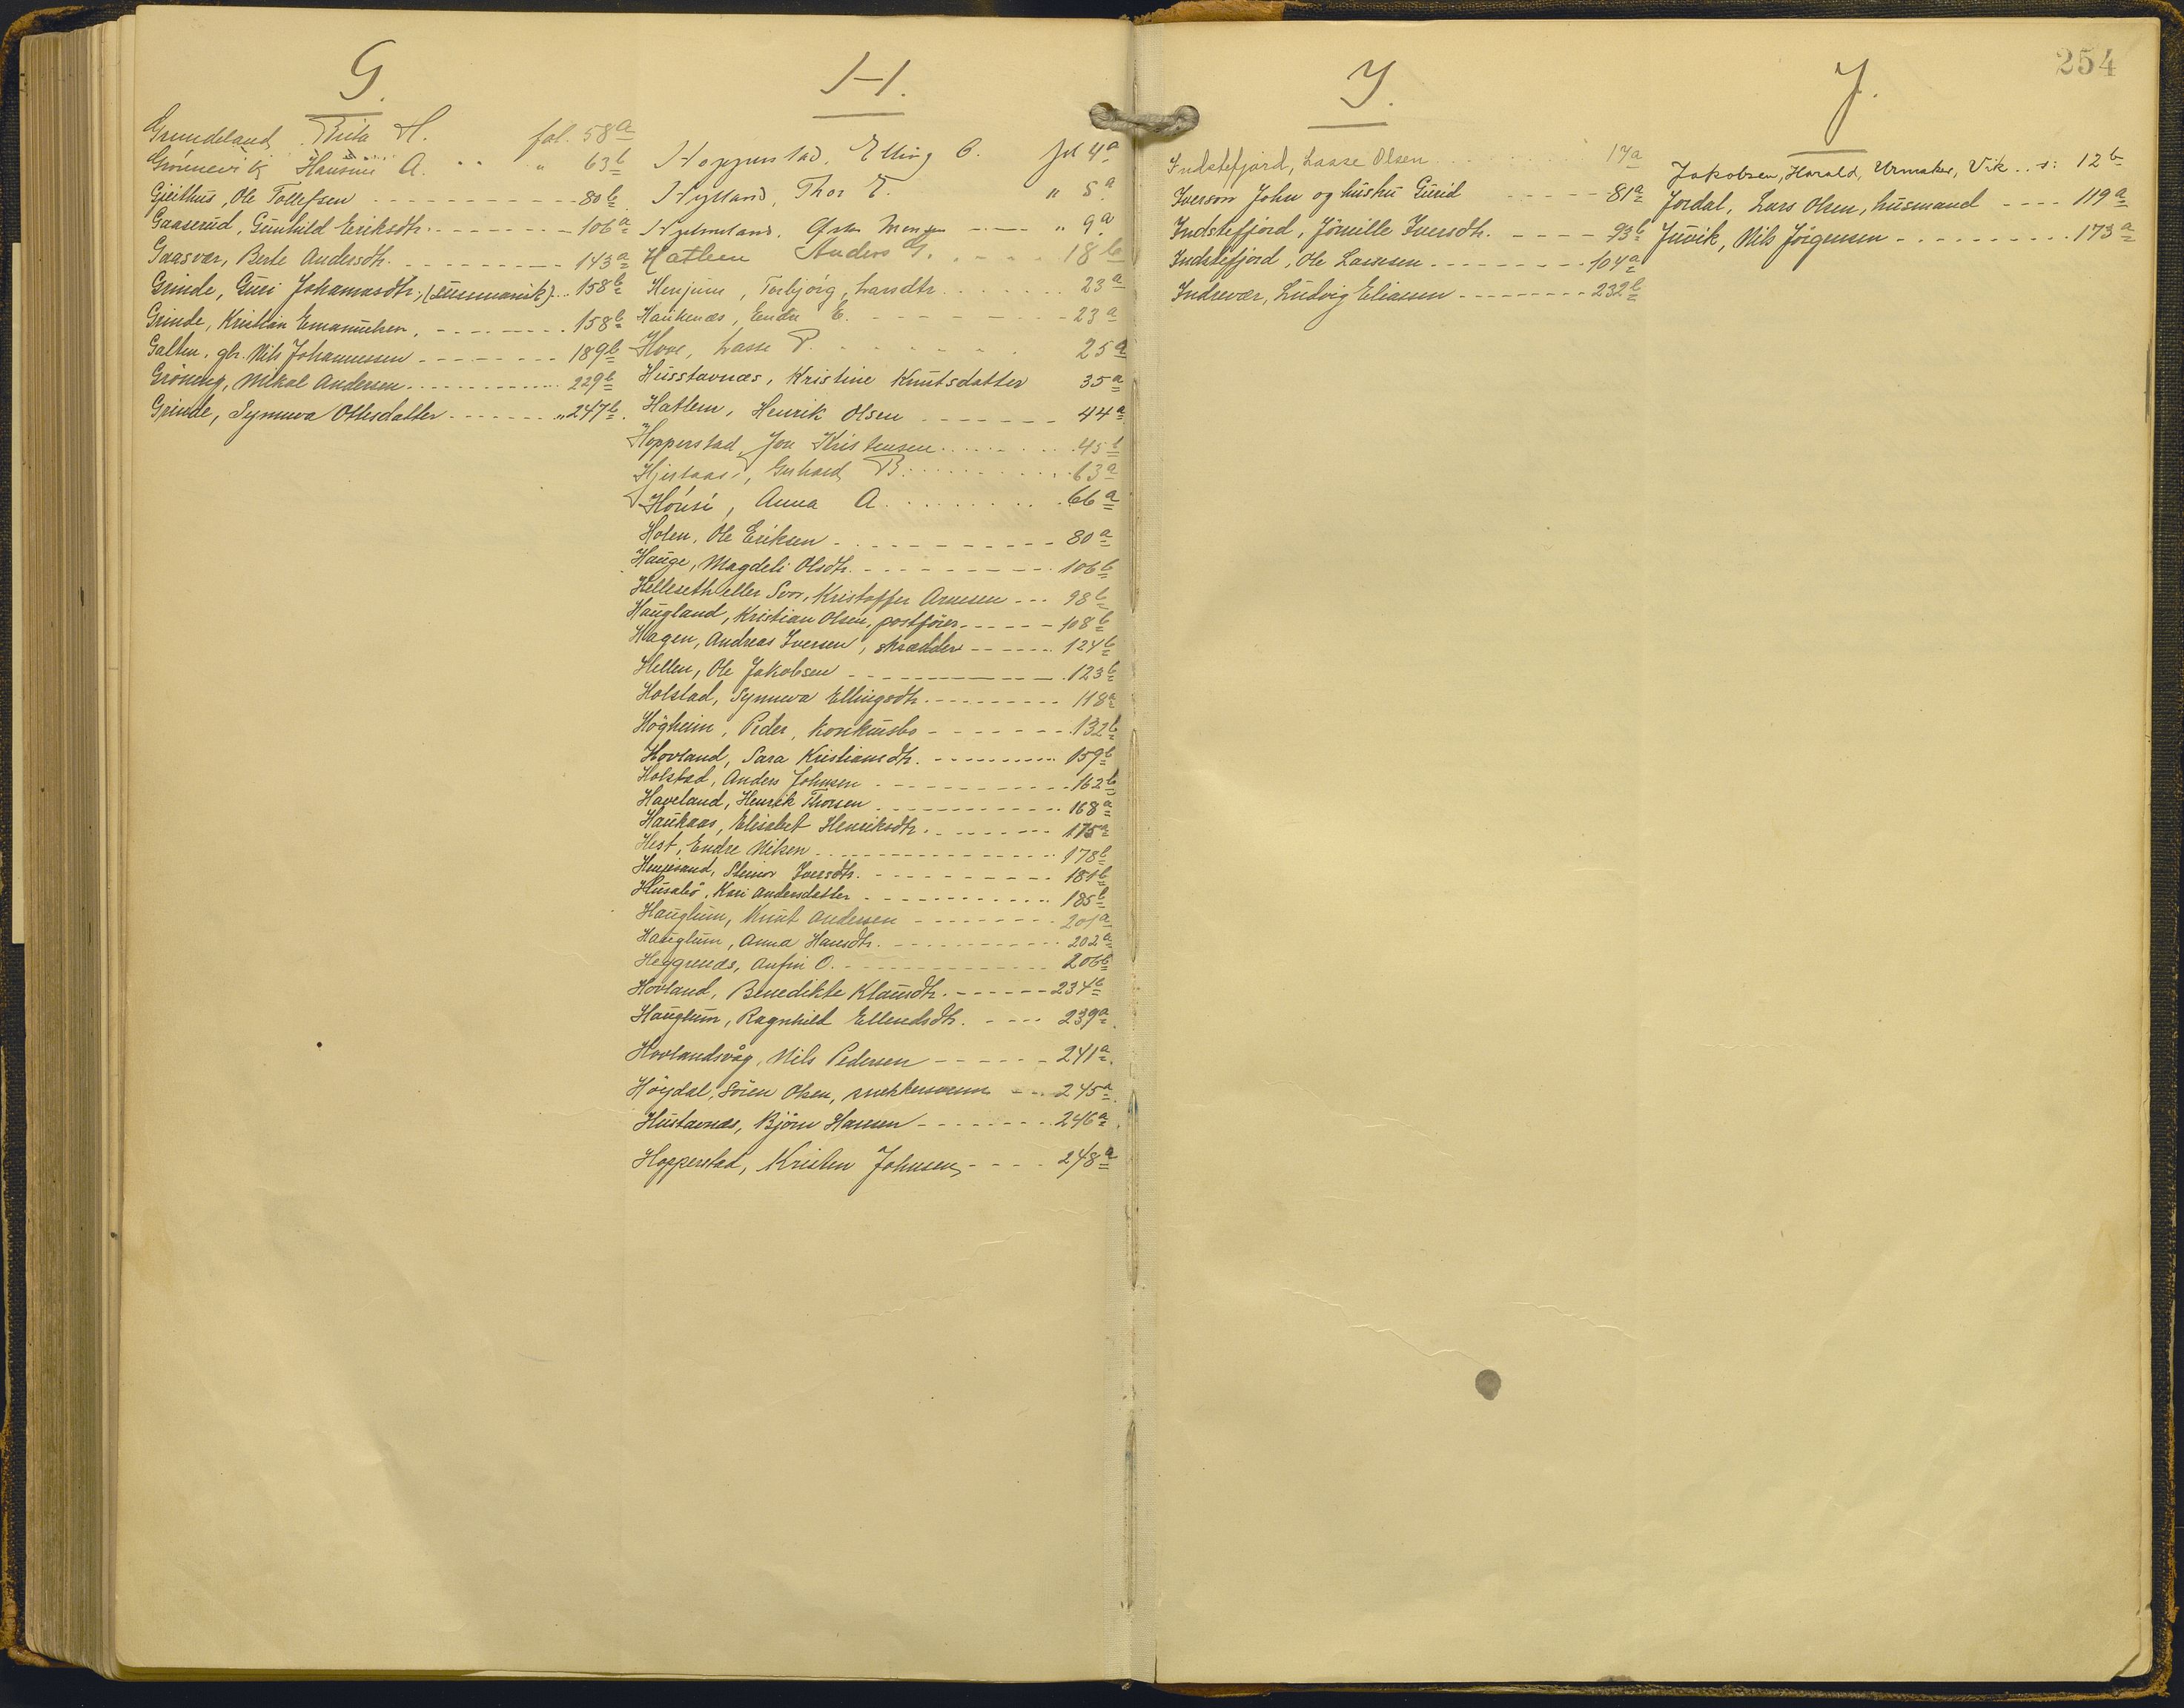 G.
Grundeland, Brita H. fol. 58a
Grönnevik, Hansine A. " 63b
Gjeithus, Ole Tollefsen 80b
Gaaserud, Gunhild Eriksdtr. 106a
Gaasvær, Berte Andersdtr. 143a
Grinde, Guri Johannesdtr, 158b
Grinde, Kristian Emanuelsen, 158b
Galten, gbr. Nils Johannessen 189b
Gröning, Mikal Andersen 229b
Grinde, Synneva Ottesdatter " 247b.
H.
Hopperstad, Elling O. fol 4a
Hylland, Thor E. " 5a
" 9a
Hatlem Anders G. 18b
Henjum, Torbjörg, Larsdtr 23a
Haukenæs, Endre E. 23a
Hove, Lasse P. 25a
Husstavnæs, Kristine Knutsdatter 35a
Hatlem, Henrik Olsen 44a
Hopperstad, Jon Kristensen 45b
Gerhard B. 63a
Anna A. 66a
Holen, Ole Eriksen 80a
Hauge, Magdeli Olsdtr. 106b
Helleseth eller Svor, Kristoffer Arnesen 98b
Haugland, Kristian Olsen, postförer 108b
Hagen, Andreas Iversen, skrædder 124b
Hellen, Ole Jakobsen 123b
Holstad, Synneva Ellingsdtr. 118a
Högheim, Peder, konkursbo 132b
Hovland, Sara Kristiansdtr. 159b
Holstad, Anders Johnsen 162b
Haveland, Henrik Thorsen 168a
Haukaas, Elisabet Henriksdtr. 175a
Hest, Endre Nilsen 178b
Henjesand, Steinor Iversdtr. 181b
Husabö, Kari Andersdatter 185b
Hauglum, Knut Andersen 201a
Hauglum, Anna Hansdtr. 202a
Heggenæs, Anfin O. 206b
Hovland, Benedikte Klausdtr. 234b
Hauglum, Ragnhild Ellendsdtr. 239a.
Hovlandsvåg, Nils Pedersen 241a.
Höydal, Sören Olsen, snekkersvenn 245a.
Hustavnæs, Björn Hansen 246a.
Hopperstad, Kristen Johnsen, 248a
I.
Indstefjord, Lasse Olsen 17a
Iverson John og hustru Gurid 81a
Indstefjord, Jörnille Iversdtr. 93b
Indstefjord, Ole Lassesen 104a
Indrevær, Ludvig Eliassen 232b
254
J.
Jakobsen, Harald, Urmaker, Vik .. s: 12b
Jordal, Lars Olsen, husmand 119a
Juvik, Nils Jörgensen 173a